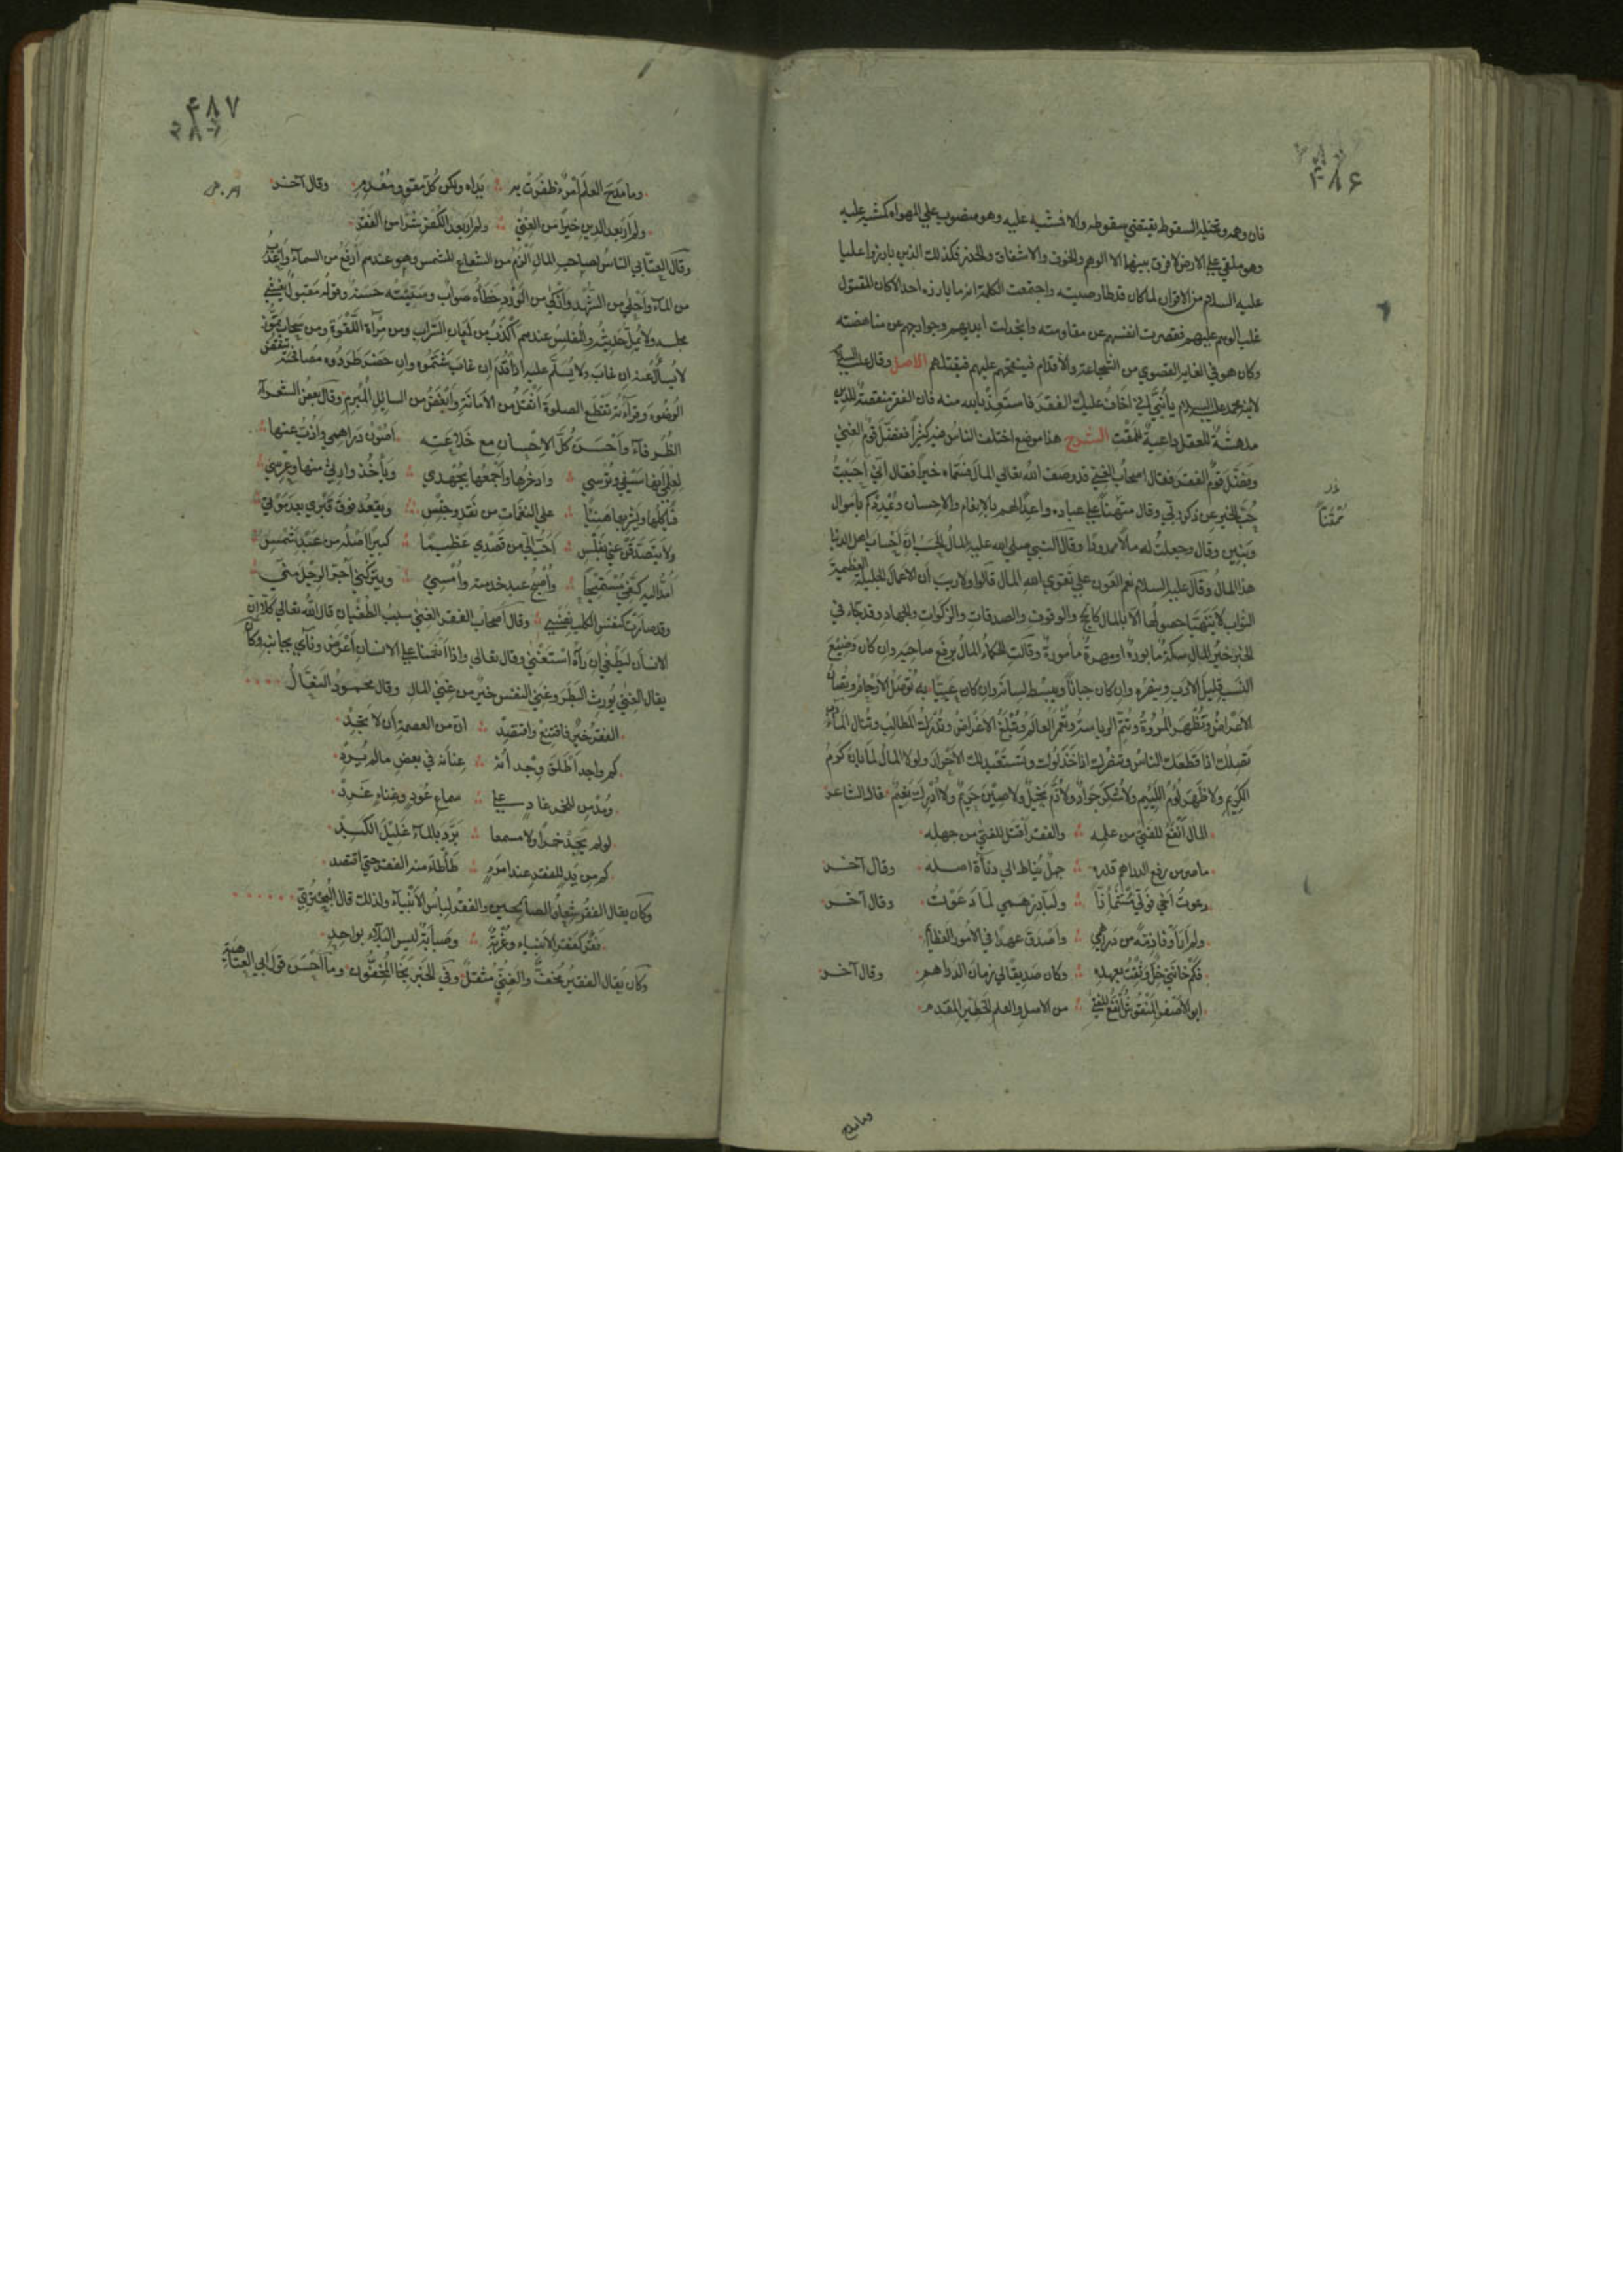 ۴۸۶
فان وهمه وتخيله السقوط يقتضي سقوطه والا فمشيه عليه وهو منصوب علي الهواء كمشيه عليه
وهو ملقي علي الارض لا فرق بينهما الا الوهم والخوف والاشفاق والحذر فكذلك الذين بارزوا عليا
عليه السلام من الاقران لما كان قد طار صيته واجتمعت الكلمة انه ما بارزه احد الا كان المقتول
غلب الوهم عليهم فقصرت انفسهم عن مقاومته وانخذلت ايديهم وجوارحهم عن مناهضته
وكان هو في الغاية القصوي من الشجاعة والاقدام فيقتحم عليهم فيقتلهم الاصل وقال عليه السلام
لابنه محمد عليه السلام يا بُنَيَّ اني اخافُ عليك الفقرَ فاستعِذْ بالله منه فان الفقر منقصةٌ للدين
مدهشةٌ للعقل داعيةٌ للمَقْتِ الشرح هذا موضع اختلف الناسُ فيه كثيراً ففضّل قومٌ الغِنى
وفضّل قومٌ الفقرَ فقال اصحابُ الغِني قد وصف الله تعالي المالَ فسَمّاه خيراً فقال اِنّي اَحْبَبْتُ
حُبَّ الخير عن ذكر ربّي وقال ممتناً علي عباده واعدًا لهم بالانعام والاحسان ويُمْدِدْكم بأموال
وبنين وقال وجعلتُ له مالًا ممدودًا وقال النبي صلي الله عليه المالُ الحَسَبُ اِنّ اَحْساب اهل الدنيا
هذا المالُ وقال عليه السلام نعم العَون علي تقوي الله المال قالوا ولا ريب أن الاعمالَ الجليلة العظيمة
الثواب لا يتهيّأ حصولُها الا بالمال كالحج والوقوف والصدقات والزكوات والجهاد وقد جاء في
الخبر خيرُ المال سكةٌ مأبورةٌ او مهرةٌ مأمورةٌ وقالت الحكماءُ المالُ يرفع صاحبه وان كان وضيع
النسب قليل الادب وينصُره وان كان جباناً ويبسُط لسانه وان كان عَييّا به تُوصَلُ الارحامُ وتُصان
الاعراضُ وتَظْهَر المُروّةُ وتَتمّ الرياسةُ ويُعْمَر العالَمُ وتُبْلَغُ الاغراضُ وتُدْرَكُ المطالبُ وتُنال المآربُ
يَصِلُك اذا قَطعك الناسُ وينصُرك اذا خَذَلوك ويَستعبد لك الاحرارَ ولولا المالُ لما بان كَرَمُ
الكريم ولا ظَهَر لُؤمُ اللئيم ولا شُكِر جَوادٌ ولا ذُمّ بخيلٌ ولا صِينَ حَريمٌ ولا اُدْرِكَ نعيمٌ قال الشاعر
المال أنْفَعُ للفتي من علمه والفقر أقتلُ للفتي من جهله
ما ضرّ من رفع الدراهم قدره جهلٌ يُناط الي دناءة اصله وقال آخر
دعوتُ أخي فولّي مُشمئزّا ولبّي درهمي لمّا دَعوتُ وقال آخر
ولم أرَ أوْفا ذمّةً من دراهمي واَصْدَق عهدًا في الامور العظائم
فكم خانني خِلٌّ وَثِقتُ بعهده وكان صَديقاً لي زمانَ الدراهم وقال آخر
ابو الأصفر المنقوشُ أنفَعُ للفتي من الاصل والعلم الخطير المقدم
وما مدح
۴۸۷
وما مَدَحَ العلمَ امرؤ ظفرتْ به يَداه ولكن كلّ مُقوٍ ومُعْدِم وقال آخر
ولم أرَ بعد الدين خيرًا من الغِني ولم أرَ بعد الكفر شرًّا من الفقر
وقال العتّابي الناسُ لصاحب المال اَلْزَمُ من الشعاع للشمس وهو عندهم أرفعُ من السماءِ وأعذبُ
من الماءِ واَحلي من الشهد وأذكي من الورد خطأُه صوابٌ وسيئته حسنةٌ وقوله مقبولٌ يُغشي
مجلسه ولا يُملّ حديثُه والمفلسُ عندهم أكذبُ من لمعان السراب ومن مرآة اللقوة ومن سحاب تموز
لا يُسأَلُ عنه ان غاب ولا يُسلَّم عليه اذا قَدَم ان غابَ شَتَموه وان حَضَر طردوه مصافحتُه تنقض
الوُضُوءَ وقراءته تقطع الصلوة أثقَلُ من الامانة وأبغَضُ من السائل المُبرم وقال بعضُ الشعراء
الظرفاء واَحْسَنَ كلَّ الاحسان مع خلاعته اَصُونُ دراهمي واَذُبّ عنها
لِعِلْمي أنها سَيفي وتُرسي وادّخرُها واَجْمعُها بجُهدي ويأخذ وارثي منها وعِرسي
فيأكلُها ويشربها هنيئًا علي النغمات من نَقْرٍ وجَسّ ويقعُد فوق قبري بعد موتي
ولا يتصدّقَنْ عنّي بفَلْسِ اَحَبُّ اليّ من قصدي عظيمًا كبيرًا اصلُه من عبد شمسِ
أمُدُّ اليه كفّي مُستميحًا واُصبحُ عبد خدمته واُمسي ويتركني اَجرّ الرِجْلَ منّي
وقد صارت كنفس الكلب نفسي وقال أصحابُ الفقر الغِني سببُ الطغيان قال الله تعالي كلّا اِنّ
الانسانَ ليطغي ان رآه استغني وقال تعالي واذا أنعمنا علي الانسان أعْرَض ونأي بجانبه وكان
يقال الغِني يُورث البَطَر وغِنى النفس خيرٌ من غِني المال وقال محمود البقّال
الفقرُ خيرٌ فاقتنعْ واقتصِدْ انّ من العصمة أن لا تجِدْ
كم واجدٍ اَطلَق وِجْدانُه عِنانه في بعض ما لم يُرِدْ
ومُدْمن للخمر غادٍ علي سماع عُودٍ وغِناءٍ غَرِدْ
لو لم يَجِدْ خمرًا ولا مسمعا بَرّدَ بالماء غَليلَ الكَبِدْ
كم من يَدٍ للفقر عند امرءٍ طأطأ منه الفقر حتي اقتصد
وكان يقال الفقر شعارُ الصالحين والفقر لباسُ الانبياء ولذلك قال البُحْتُرِيّ
فقرٌ كفقر الانبياء وغُرْبةٌ وصبابةٌ ليس البلاء بواحدِ
وكان يُقال الفقيرُ مُخِفٌّ والغنيّ مُثقلٌ وفي الخبر نَجا المُخِفّون وما اَحْسَن قولَ ابي العتاهية